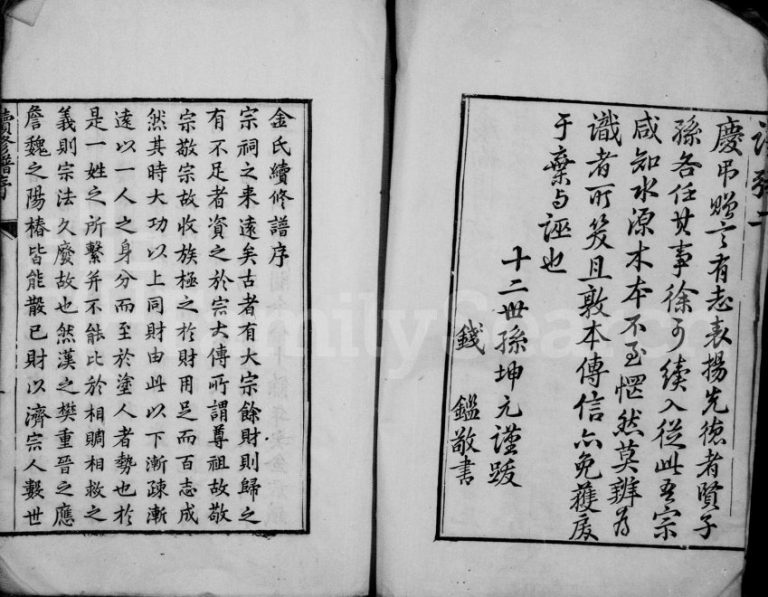 慶弔贈言有志表揚先德者賢子
孫各任其事徐可續入從此吾宗
咸知水源木本不至惘然莫辨為
識者所笑且敦本傳信亦免獲戾
于棄與誣也
十二世孫坤元謹跋
錢鑑敬書
金氏續修譜序
宗祠之來遠矣古者有大宗餘財則歸之
有不足者資之於宗大傳所謂尊祖故敬
宗敬宗故收族極之於財用足而百志成
然其時大功以上同財由此以下漸疎漸
遠以一人之身分而至於塗人者勢也於
是一姓之所繫并不能比於相賙相救之
義則宗法久廢故也然漢之樊重晉之應
詹魏之陽椿皆能散已財以濟宗人數世
續修譜序
FamilySearch